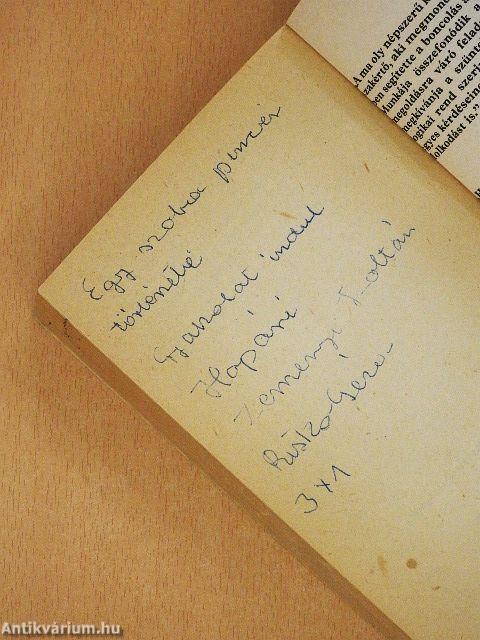 A ma oly népszerű k
zakértő, aki megmond
en segítette a boncolás
Munkája összefonódik a
megoldásra váró felada
megkívánja a szünte
ogikai rend szerb
gyes kérdésein
olkodást is."
Egy szobra pincér
története
Gyakorlat indul
Hapári
Zemenyi Zoltán
Riskó Géza
3x1
Antikvárium.hu